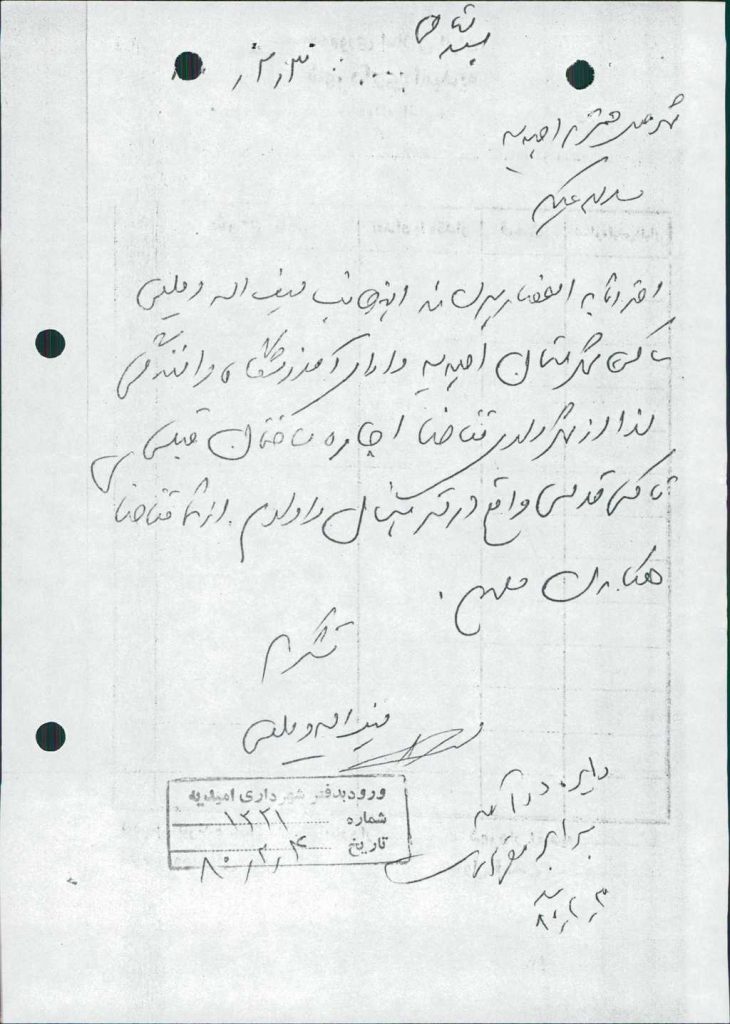 بسمه تعالی
شهردار محترم امیدیه
سلام علیکم
احتراما به استحضار میرساند اینجانب فیض اله ویسی
ساکن شهرستان امیدیه دارای آموزشگاه رانندگی
لذا از شهرداری تقاضا اجاره ساختمان قبلی
تاکسی واقع در را دارم. از شما تقاضا
همکاری دارم.
تشکر
فیض اله ویسی
ورود بدفتر شهرداری امیدیه
شماره ۱۲۲۱
تاریخ ۸۰٫۳٫۴
دایره درآمد
برابر مقررات